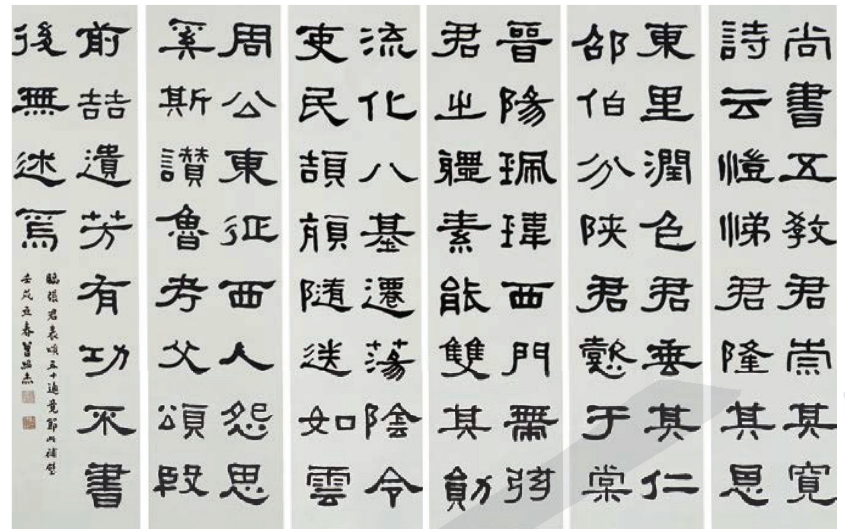 尚書五教君崇其寬
詩云愷悌君隆其恩
東里潤色君垂其仁
邵伯分陝君懿于棠
晉陽珮瑋西門帶弦
君之體素能雙其勛
流化八基遷蕩陰令
吏民頡頏隨送如雲
周公東征西人怨思
奚斯讚魯考父頌殷
前喆遺芳有功不書
後無述焉
臨張君表頌五十通竟節以補壁
壬戌立春曾紹杰